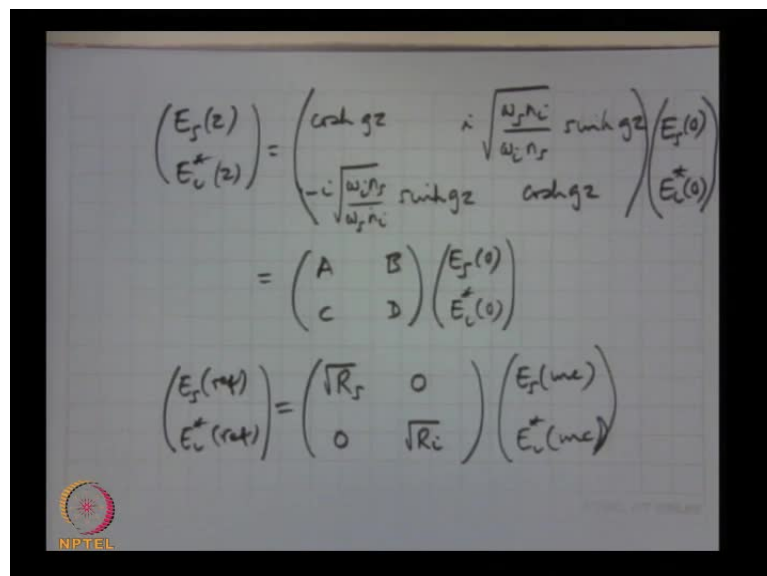 (E_s(z) / E_i^*(z)) = (cosh gz   i √(ω_s n_i / ω_i n_s) sinh gz / -i √(ω_i n_s / ω_s n_i) sinh gz   cosh gz) (E_s(0) / E_i^*(0))
= (A   B / C   D) (E_s(0) / E_i^*(0))
(E_s(ref) / E_i^*(ref)) = (√R_s   0 / 0   √R_i) (E_s(inc) / E_i^*(inc))
NPTEL